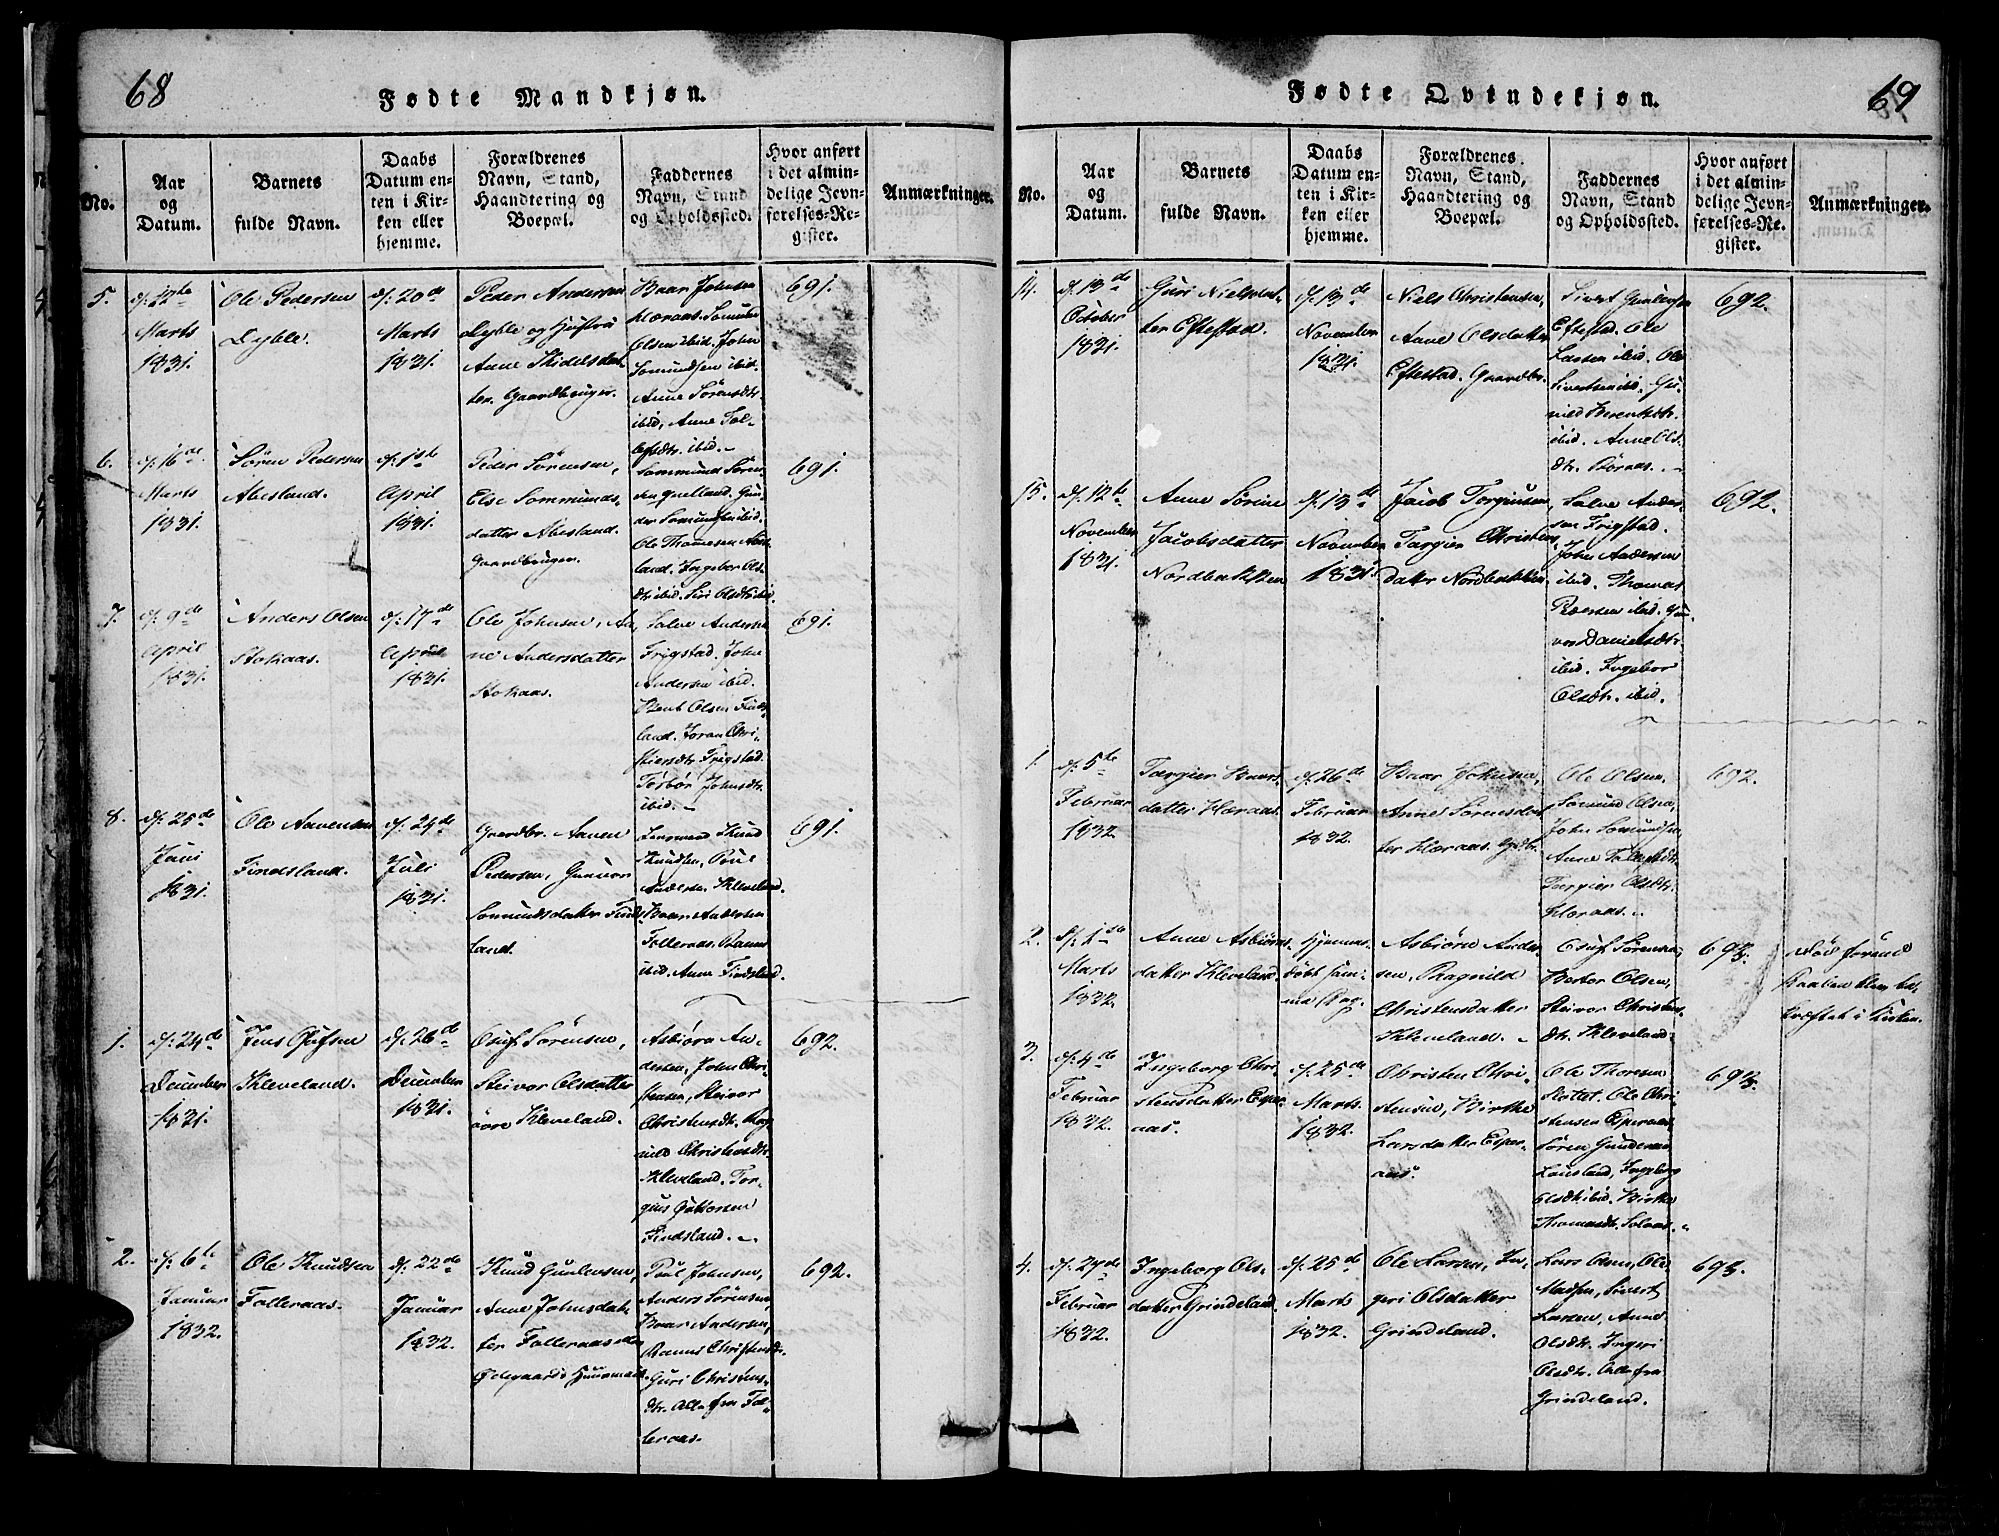 68
Fødte Mandkjøn.
No.
Aar
og
Datum.
Barnets
fulde Navn.
Daabs
Datum en-
ten i Kir-
ken eller
hjemme.
Forældrenes
Navn, Stand,
Haandtering og
Boepæl.
Faddernes
Navn, Stand
og Opholdssted.
Hvor anført
i det almin-
delige Jevn-
førelses-Re-
gister.
Anmærkninger.
5.
d. 17de
Marts
1831.
Ole Pedersen
Dyble.
d. 20de
Marts
1831.
Peder Andersen
Dyble og Hustru
Anne Kidelsdat-
ter. Gaardbruger.
Baar Johnsen
Høraas. Sommun
Olsen ibid. John
Somundsen ibid.
Anne Sörensdtr.
ibid, Anne Tol-
lefsdtr. ibid.
691.
6.
d. 16de
Marts
1831.
Sören Pedersen
Abesland.
d. 1ste
April
1831.
Peder Sörensen,
Else Sommunds-
datter Abesland.
Gaardbruger.
Sommund Sören-
sen Qvelland. Gun-
der Somundsen ibid.
Ole Thomesen
land. Ingebor Ols-
dtr ibid. Siri Olsdtr ibid.
691.
7.
d. 9de
April
1831.
Anders Olsen
Stokaas.
d. 17de
April
1831.
Ole Johnsen, An-
ne Andersdatter
Stokaas.
Salve Andersen
Frigstad. John
Andersen ibid.
Bent Olsen Finds-
land. Joran Chri-
stensdtr. Frigstad.
Torbor Johnsdtr.
ibid.
691.
8.
d. 25de
Juni
1831.
Ole Aavensen
Findsland.
d. 24de
Juli
1831.
Gaardbr. Aaven
Pedersen, Gunvor
Somundsdatter Finds-
land.
Lensmand Knud
Knudsen, Poul
Andersen Kleveland.
Baar Andersen
Folleraas. Ranne
ibid. Anne Findsland.
691.
1.
d. 24de
December
1831.
Jens Osufsen
Kleveland.
d. 26de
December
1831.
Osuf Sörensen,
Steivor Olsdatter
övre Kleveland.
Asbiörn An-
dersen, John Chri-
stensen, Steivor
Christensdtr. Rag-
nild Christensdtr.
Kleveland. Tor-
gius Guttorsen
Findsland.
692.
2.
d. 6te
Januar
1832.
Ole Knudsen
Folleraas.
d. 22de
Januar
1832.
Knud Gunlevsen,
Anne Johnsdat-
ter Folleraas
Ødegaards Huusmand.
Poul Johnsen,
Anders Sörensen,
Baar Andersen,
Ranne Christensdtr.
Guri Christens-
dtr. Alle fra Fol-
leraas.
692.
69
Fødte Qvindekjøn.
No.
Aar
og
Datum.
Barnets
fulde Navn.
Daabs
Datum en-
ten i Kir-
ken eller
hjemme.
Forældrenes
Navn, Stand,
Haandtering og
Boepæl.
Faddernes
Navn, Stand
og Opholdssted.
Hvor anført
i det almin-
delige Jevn-
førelses-Re-
gister.
Anmærkninger.
14.
d. 13de
October
1831.
Guri Nielsdat-
ter Eftestad.
d. 13de
November
1831.
Niels Christensen,
Anne Olsdatter
Eftestad. Gaardbr.
Sivert Gunlevsen
Eftestad. Ole
Larsen ibid. Ole
Sivertsen ibid. Gu-
nild Berentsdtr.
ibid. Anne Ols-
dtr. Röraas.
692.
15.
d. 12te
November
1831.
Anne Sörine
Jacobsdatter
Nordbekken
d. 13de
November
1831.
Jacob Torgiusen,
Targier Christens-
datter Nordbekken
Salve Ander-
sen Frigstad.
John Andersen
ibid. Thomas
Pedersen ibid. Gun-
vor Danielsdtr.
ibid. Ingebor
Olsdtr. ibid.
692.
1.
d. 5te
Februar
1832.
Targier Baars-
datter Høraas.
d. 26de
Februar
1832.
Baar Johnsen,
Anne Sörensdat-
ter Høraas. Grdbr.
Ole Olsen,
Somund Olsen,
John Somundsen,
Anne Tollefsdtr.
Targier Olsdtr.
Høraas.
692.
2.
d. 1ste
Marts
1832.
Anne Asbiörns-
datter Kleveland.
Hjemme-
döbt sam-
me Dag.
Asbiörn Ander-
sen, Ragnild
Christensdatter
Kleveland.
Osuf Sörensen,
Berber Olsen,
Steivor Christens-
dtr. Kleveland.
693.
Död förend
Daaben blev be-
kræftet i Kirken.
3.
d. 4de
Februar
1832.
Ingeborg Chri-
stensdatter Esper-
aas.
d. 25de
Marts
1832.
Christen Chri-
stensen, Birthe
Larsdatter Esper-
aas.
Ole Thoresen
Slottet. Ole Chri-
stensen Esperaas.
Sören Gundersen
Lausland, Ingeborg
Olsdtr ibid. Birthe
Thomasdtr. Solaas.
693.
4.
d. 27de
Februar
1832.
Ingeborg Ols-
datter Grindeland.
d. 25de
Marts
1832.
Ole Larsen, In-
geri Olsdatter
Grindeland.
Lars Olsen, Ole
Madsen, Sivert
Larsen, Anne
Olsdtr. Ingeri
Olsdtr. Alle fra
Grindeland.
693.